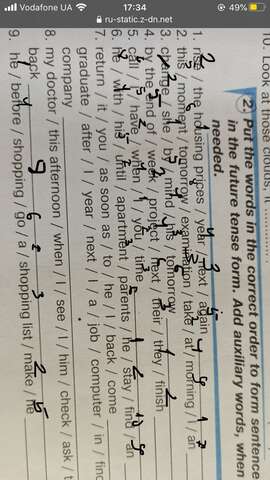 Vodafone UA 17:34 49%
ru-static.z-dn.net
10. Look at those goods, it
2) Put the words in the correct order to form sentence
in the future tense form. Add auxiliary words, when
needed.
1. rise / the housing prices / year / next / again
2. this / moment / tomorrow / examination / take / at / morning / I / an
3. change / she / by / mind / his / tomorrow
4. by the end of / week / project / next / their / they / finish
5. call / have / when / I / you / time
6. he / with / his / until / apartment / parents / he / stay / find / an
7. return / it / you / as soon as / to / he / I / back / come
graduate / after / I / year / next / I / a / job / computer / in / find
company
8. my doctor / this afternoon / when / I / see / I / him / check / ask / t
back
9. he / before / shopping / go / a / shopping list / make / he